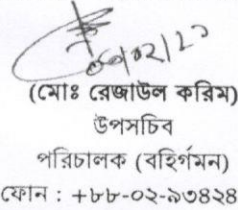 ০৬/০২/২০
(মোঃ রেজাউল করিম)
উপসচিব
পরিচালক (বহির্গমন)
ফোন : +৮৮-০২-৯৩৪২৪